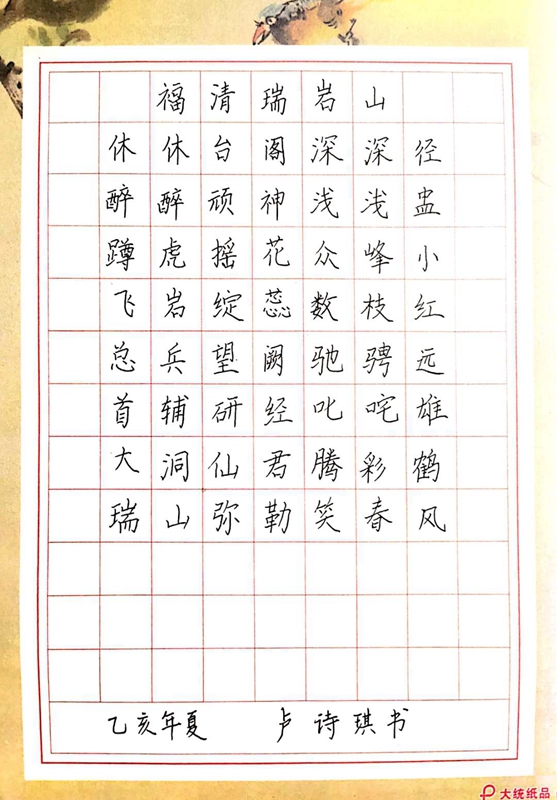 福清瑞岩山
休休台阁深深径
醉醉顽神浅浅盅
蹲虎摇花众峰小
飞岩绽蕊数枝红
总兵望阙驰骋远
首辅研经叱咤雄
大洞仙君腾彩鹤
瑞山弥勒笑春风
乙亥年夏 卢诗琪书
大统纸品